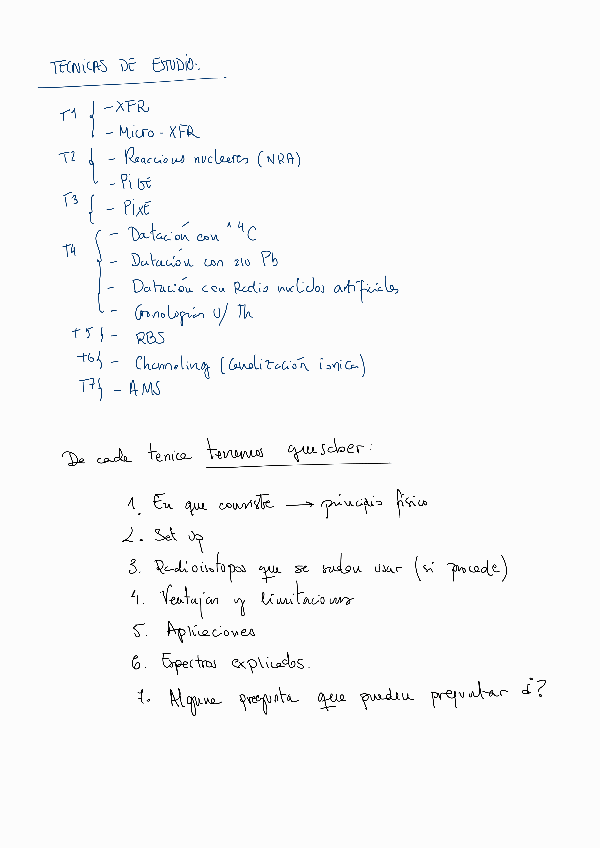 TECNICAS DE ESTUDIO:
T1 { - XFR
- Micro-XFR
T2 { - Reaccions nucleares (NRA)
- PiGE
T3 { - PIXE
T4 { - Datación con ¹⁴C
- Datación con 210 Pb
- Datación con Radio nuclidos artificiales
- Cronologías U/Th
T5 } - RBS
T6 { - Channeling (Canalización iónica)
T7 { - AMS
De cada tecnica tenemos que saber:
1. En que consiste → principio físico
2. Set Up
3. Radioisotopos que se suelen usar (si procede)
4. Ventajas y limitaciones
5. Aplicaciones
6. Espectros explicados.
7. Alguna pregunta que pueden preguntar ¿?